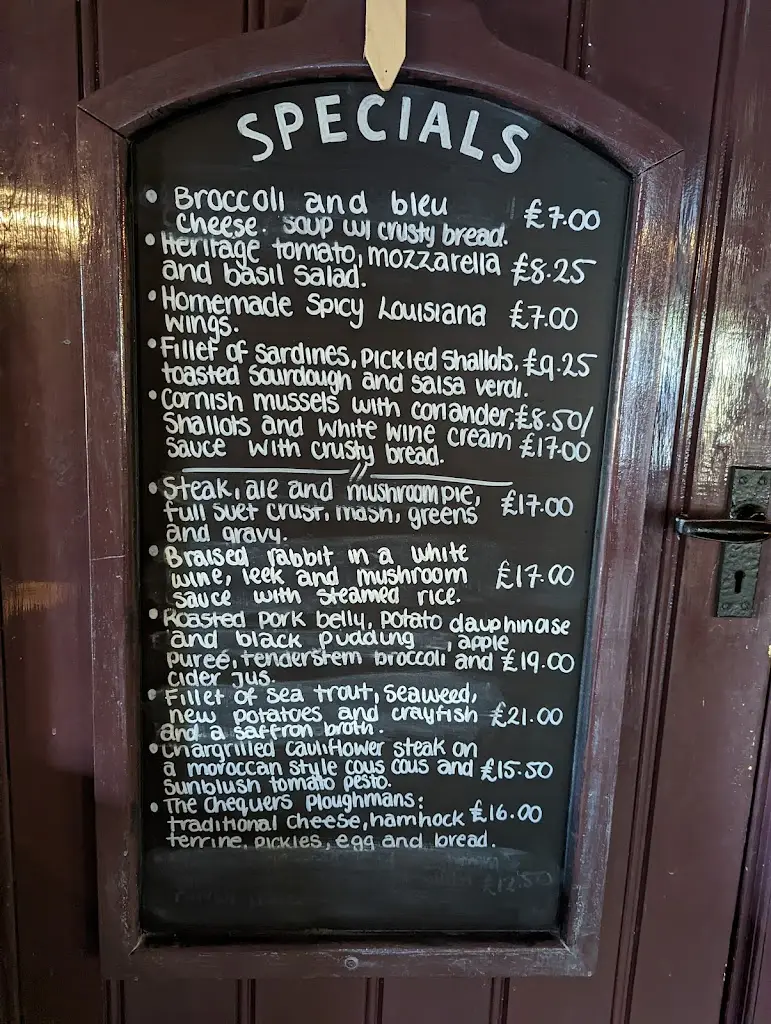 SPECIALS
• Broccoli and bleu
cheese. soup w/ crusty bread. £7.00
• Heritage tomato, mozzarella
and basil salad. £8.25
• Homemade Spicy Louisiana
wings. £7.00
• Fillet of sardines, pickled shallots, £9.25
toasted sourdough and salsa verdi.
• Cornish mussels with coriander, £8.50/
shallots and white wine cream £17.00
sauce with crusty bread.
• Steak, ale and mushroom pie, £17.00
full suet crust, mash, greens
and gravy.
• Braised rabbit in a white
wine, leek and mushroom £17.00
sauce with steamed rice.
• Roasted pork belly, potato dauphinoise
and black pudding , apple
pureé, tenderstem broccoli and £19.00
cider jus.
• Fillet of sea trout, seaweed,
new potatoes and crayfish £21.00
and a saffron broth.
• Chargrilled cauliflower steak on
a moroccan style cous cous and £15.50
sunblush tomato pesto.
• The Chequers Ploughmans:
traditional cheese, ham hock £16.00
terrine, pickles, egg and bread.